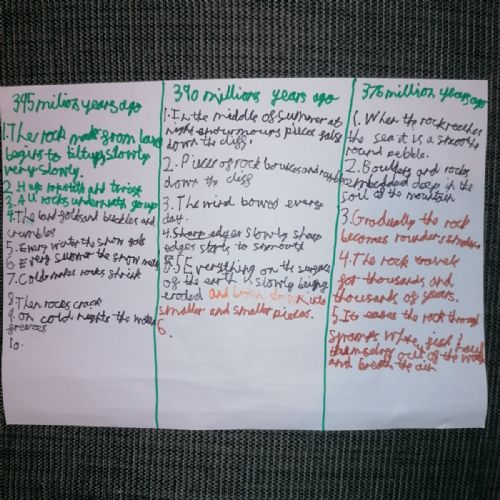 395 milion years ago
1. The rock made from lava
begins to tilt up, slowly
very slowly.
2. Huge and twist
3. All rocks underneath
4. The land folds and buckles and
crumbles
5. Every winter the snow falls
6. Every summer the snow melts
7. Cold makes rocks shrink
8. Then rocks crack
9. on cold nights the water
freezes
10.
390 millions years ago
1. In the middle of summer at
night enourmours pieces falls
down the cliff!
2. Pieces of rock bounces and
down the cliff
3. The wind bowed every
day.
4. Sharp edges slowly sharp
edges starts to smooth
5. Everything on the surface
of the earth is slowly being
eroded and down into
smaller and smaller pieces.
6.
375 million years ago
1. When the rock reaches
the sea it is a smooth
round pebble.
2. Boulders and rocks
embedded deep in the
soil of the mountain
3. Gradually the rock
becomes rounder
4. The rock travels
for thousands and
thousands of years.
5. It eases the rock through
fish haul
themselves out of the water
and breath the air